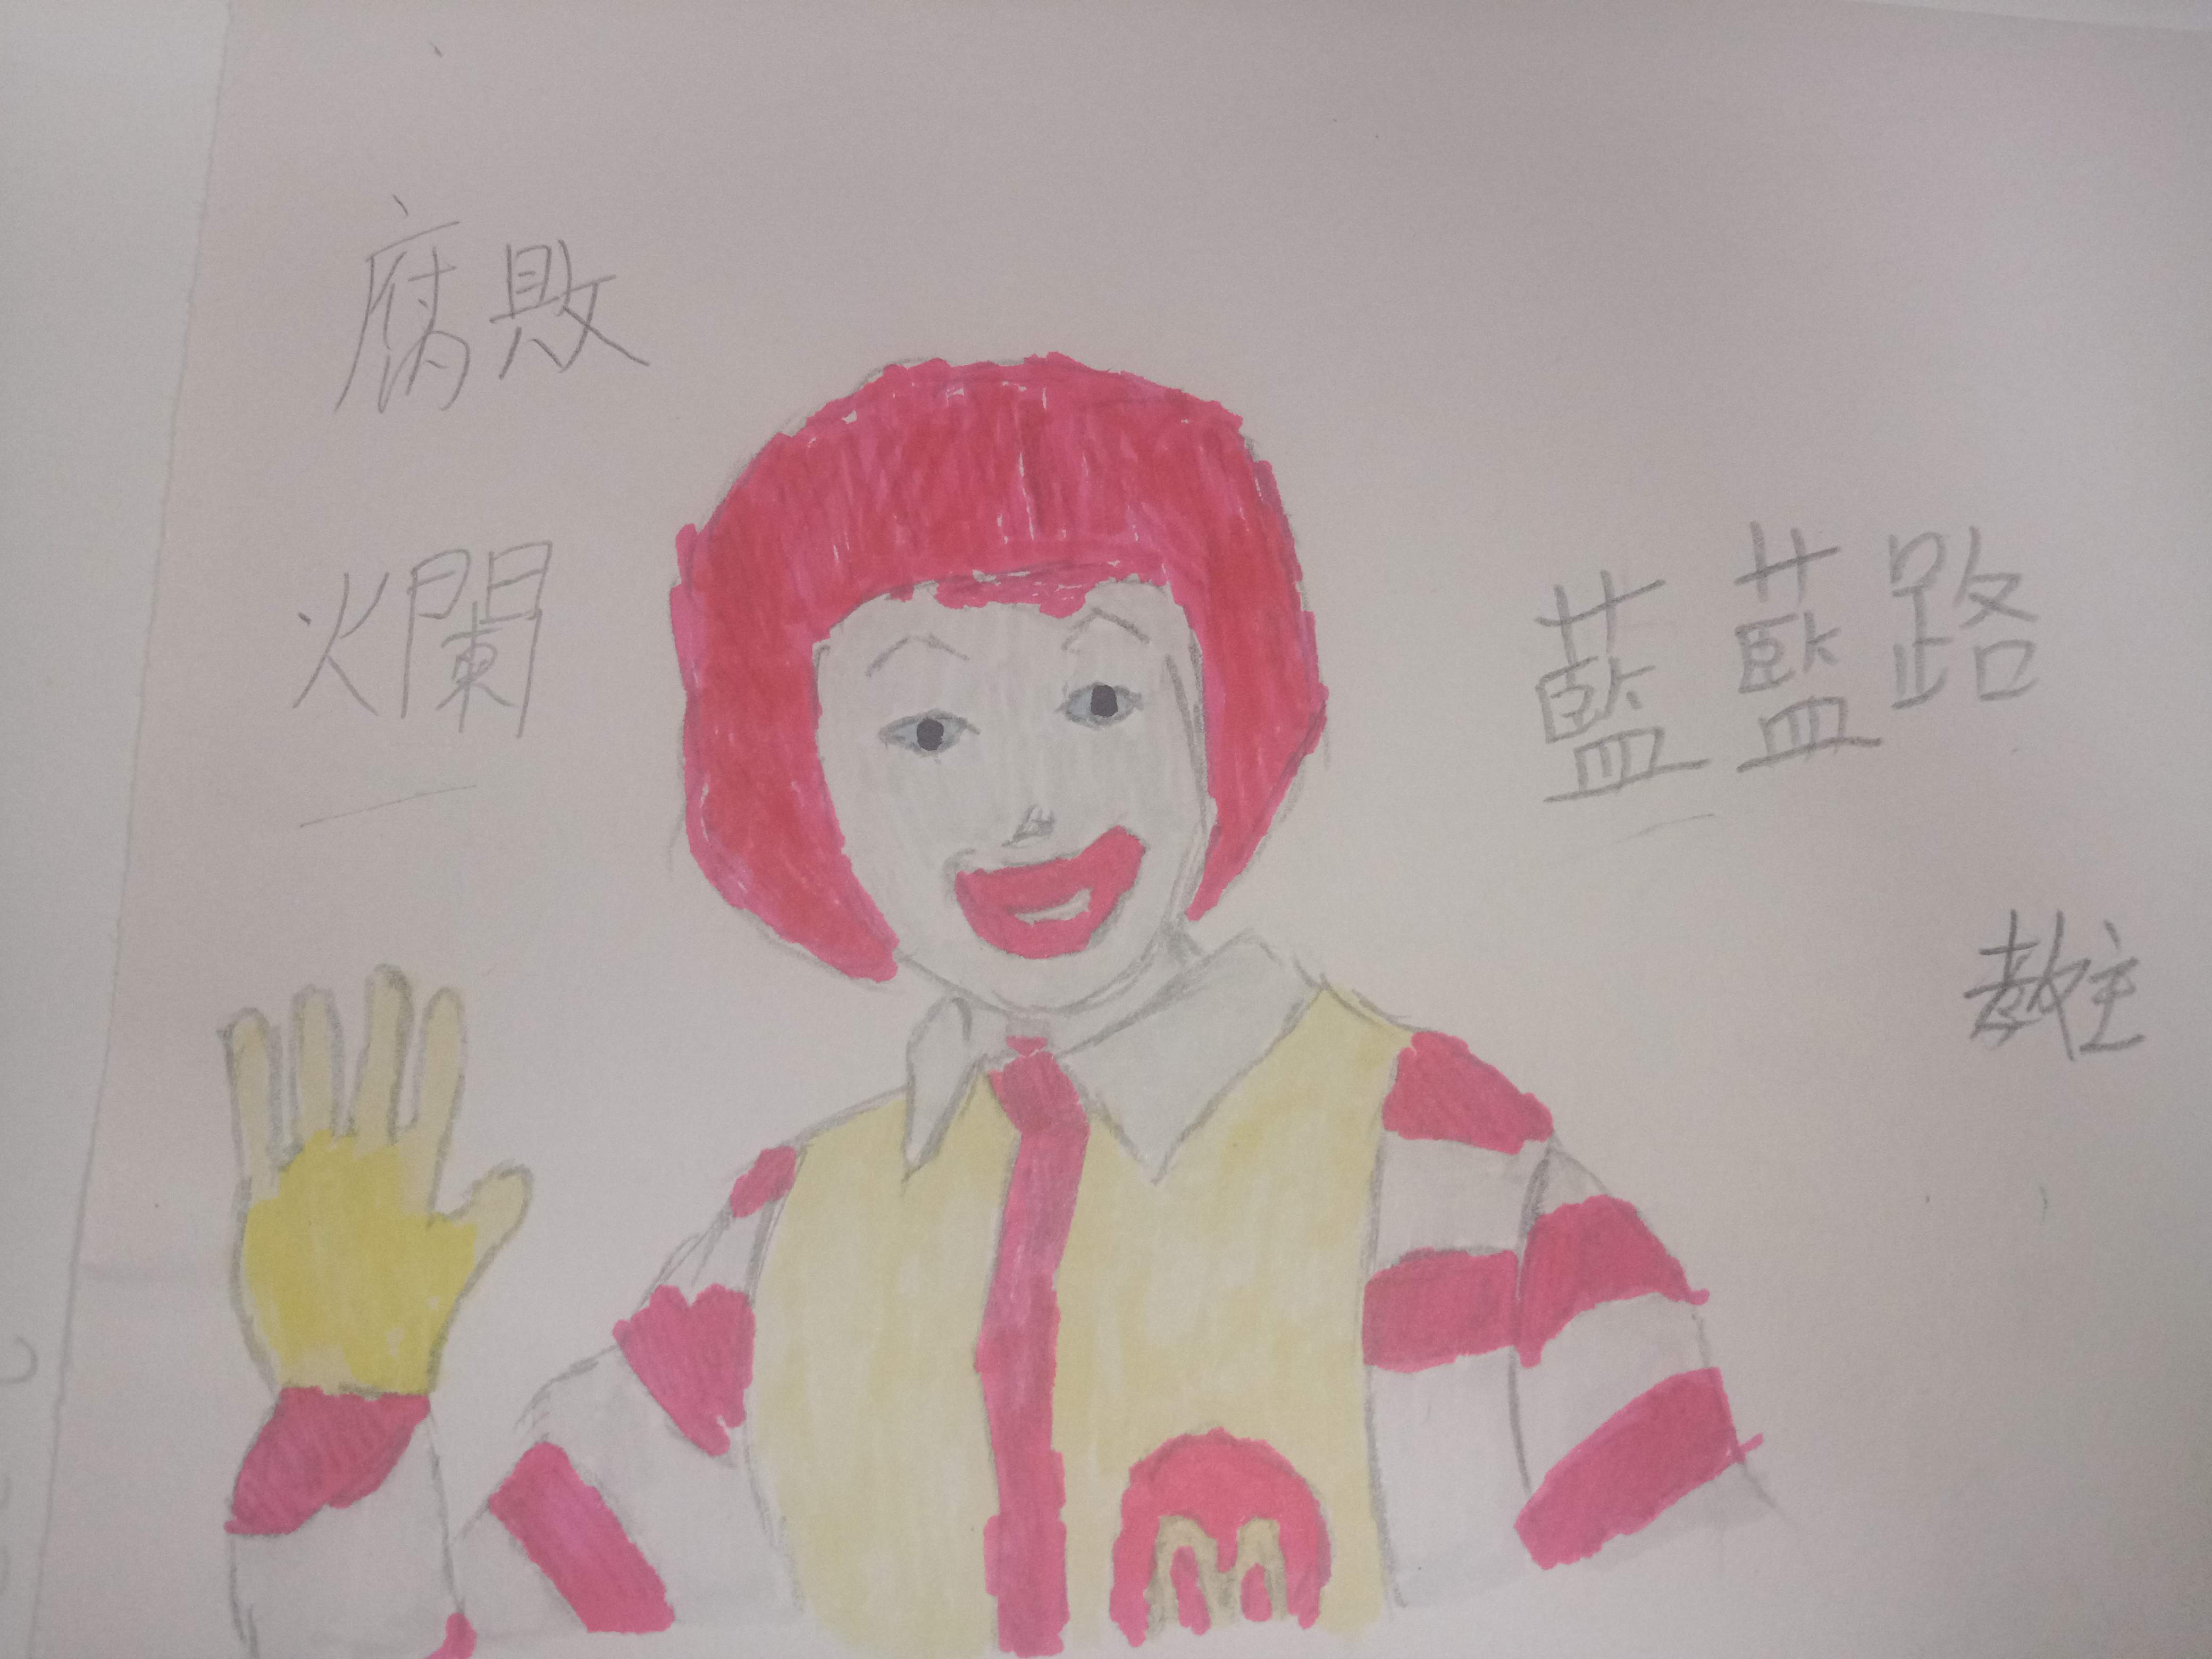 腐敗
爛
藍藍路
教主
M